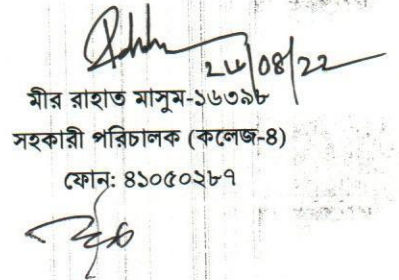 ২৮/08/22
মীর রাহাত মাসুম-১৬৩৯৮
সহকারী পরিচালক (কলেজ-৪)
ফোন: ৪১০৫০২৮৭